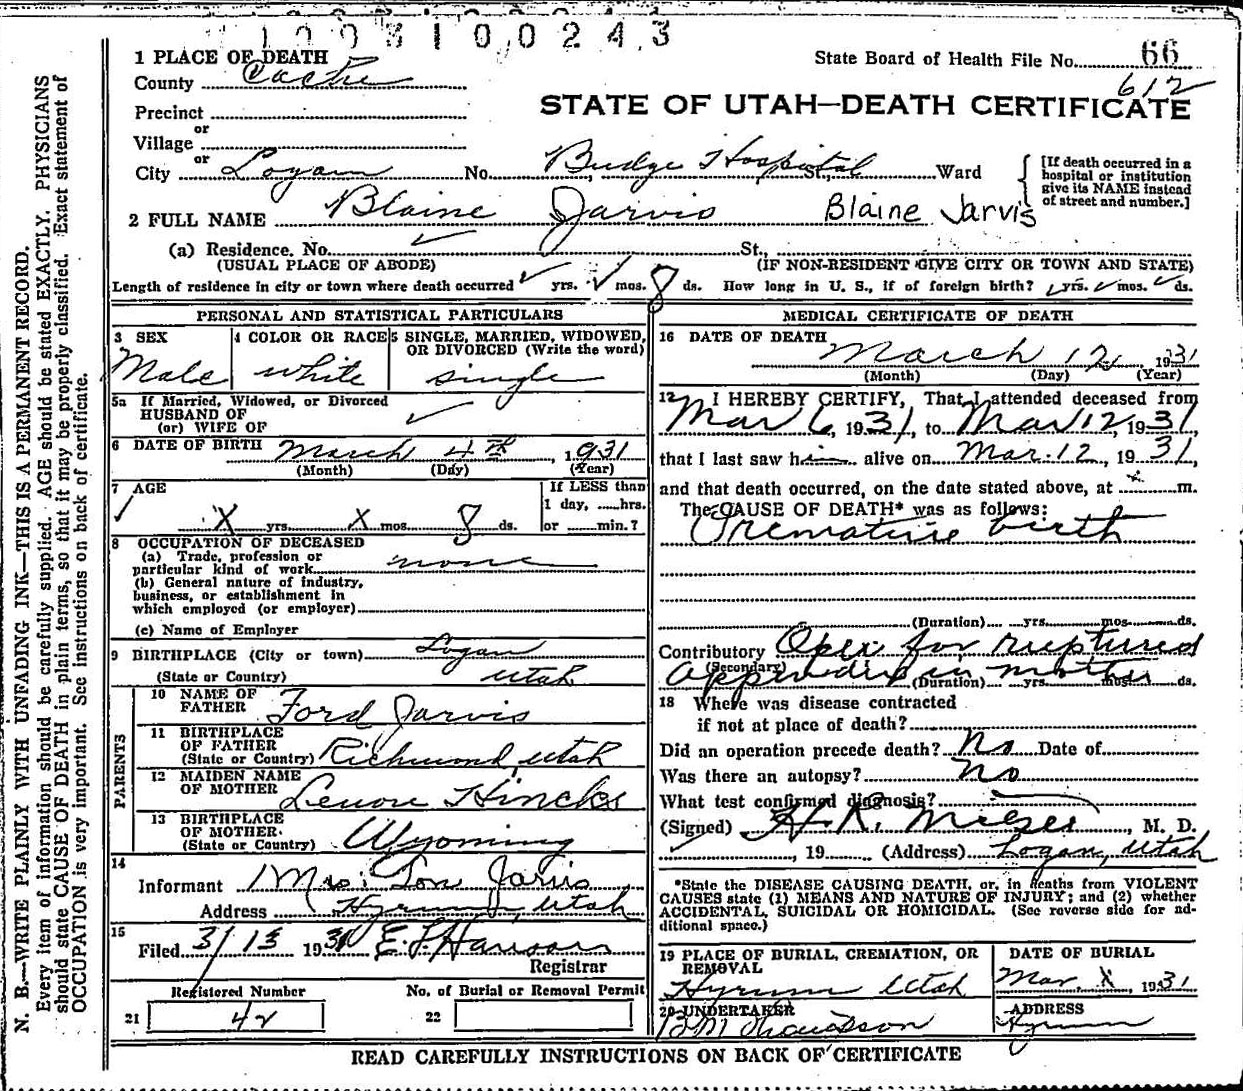 1003100243
1 PLACE OF DEATH
State Board of Health File No. 66
County Cache
612
STATE OF UTAH—DEATH CERTIFICATE
Precinct
or
Village
or
City Logan No. Budge Hospital St., Ward
[If death occurred in a hospital or institution give its NAME instead of street and number.]
2 FULL NAME Blaine Jarvis Blaine Jarvis
(a) Residence. No. St.,
(USUAL PLACE OF ABODE) (IF NON-RESIDENT GIVE CITY OR TOWN AND STATE)
Length of residence in city or town where death occurred yrs. mos. 8 ds. How long in U. S., if of foreign birth? yrs. mos. ds.
PERSONAL AND STATISTICAL PARTICULARS
3 SEX 4 COLOR OR RACE 5 SINGLE, MARRIED, WIDOWED, OR DIVORCED (Write the word)
Male white single
5a If Married, Widowed, or Divorced
HUSBAND OF
(or) WIFE OF
6 DATE OF BIRTH March 4th, 1931
(Month) (Day) (Year)
7 AGE If LESS than
1 day, ......hrs.
X yrs. X mos. 8 ds. or ......min.?
8 OCCUPATION OF DECEASED
(a) Trade, profession or
particular kind of work none
(b) General nature of industry,
business, or establishment in
which employed (or employer)
(c) Name of Employer
9 BIRTHPLACE (City or town) Logan
(State or Country) Utah
PARENTS
10 NAME OF FATHER Ford Jarvis
11 BIRTHPLACE OF FATHER
(State or Country) Richmond, Utah
12 MAIDEN NAME OF MOTHER Lenore Hincks
13 BIRTHPLACE OF MOTHER
(State or Country) Wyoming
14
Informant Mrs. Jarvis
Address Hyrum, Utah
15
Filed 3/13 1931 E. L. Hanson
Registrar
Registered Number No. of Burial or Removal Permit
21 42 22
MEDICAL CERTIFICATE OF DEATH
16 DATE OF DEATH
March 12, 1931
(Month) (Day) (Year)
17 I HEREBY CERTIFY, That I attended deceased from
Mar 6, 1931, to Mar 12, 1931,
that I last saw him alive on Mar. 12, 1931,
and that death occurred, on the date stated above, at m.
The CAUSE OF DEATH* was as follows:
Premature birth
(Duration) yrs. mos. ds.
Contributory Oper for ruptured
(Secondary) appendix in mother
(Duration) yrs. mos. ds.
18 Where was disease contracted
if not at place of death?
Did an operation precede death? No Date of
Was there an autopsy? No
What test confirmed diagnosis?
(Signed) H. R. , M. D.
, 19 (Address) Logan, Utah
*State the DISEASE CAUSING DEATH, or, in deaths from VIOLENT
CAUSES state (1) MEANS AND NATURE OF INJURY; and (2) whether
ACCIDENTAL, SUICIDAL OR HOMICIDAL. (See reverse side for ad-
ditional space.)
19 PLACE OF BURIAL, CREMATION, OR REMOVAL DATE OF BURIAL
Hyrum Utah Mar. X 1931
20 UNDERTAKER ADDRESS
Hyrum
READ CAREFULLY INSTRUCTIONS ON BACK OF CERTIFICATE
N. B.—WRITE PLAINLY WITH UNFADING INK—THIS IS A PERMANENT RECORD.
Every item of information should be carefully supplied. AGE should be stated EXACTLY. PHYSICIANS
should state CAUSE OF DEATH in plain terms, so that it may be properly classified. Exact statement of
OCCUPATION is very important. See instructions on back of certificate.